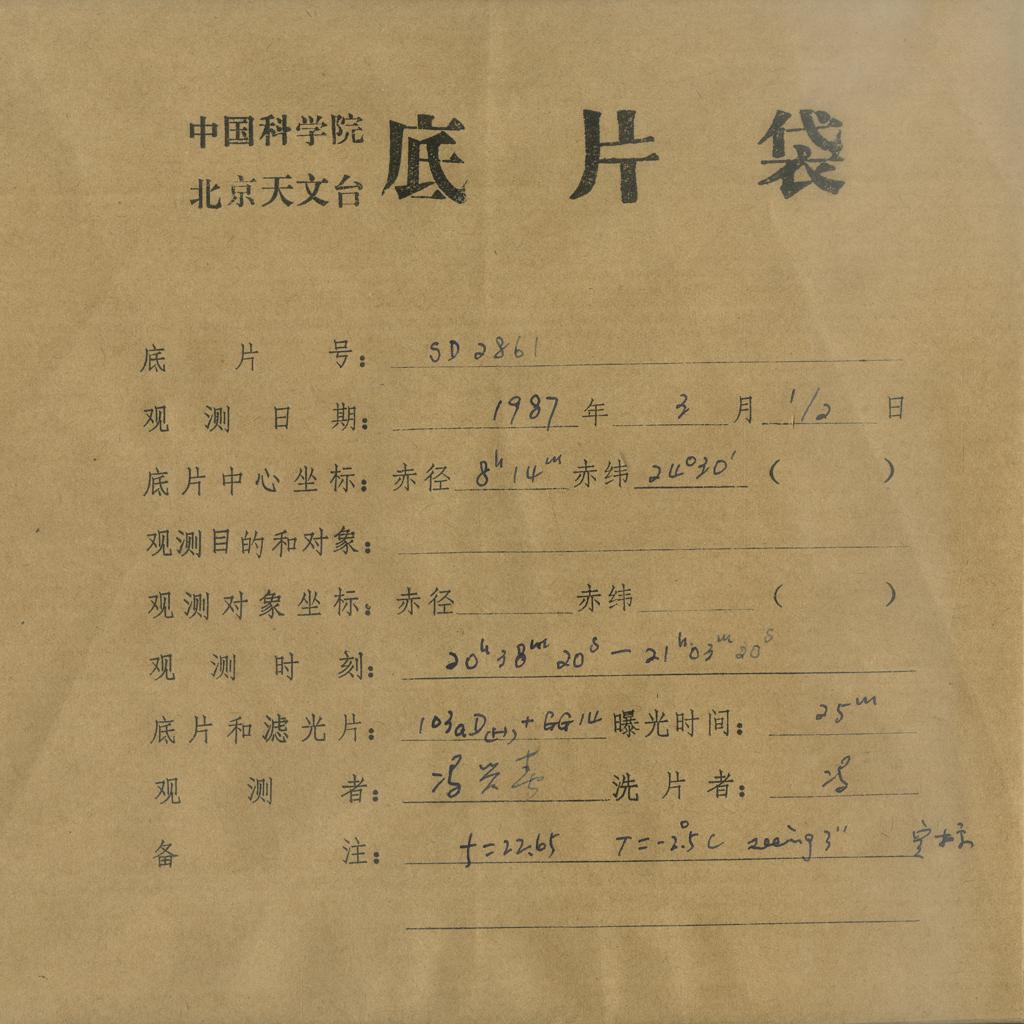 中国科学院
北京天文台
底片袋
底片号: SD2861
观测日期: 1987年3月1/2日
底片中心坐标: 赤径 8h14m 赤纬 24°30′ ( )
观测目的和对象:
观测对象坐标: 赤径 赤纬 ( )
观测时刻: 20h38m20s — 21h03m20s
底片和滤光片: 103aD + GG14 曝光时间: 25m
观测者: 冯 洗片者: 冯
备注: f=22.65 T=-2.5°C seeing 3″ 定标